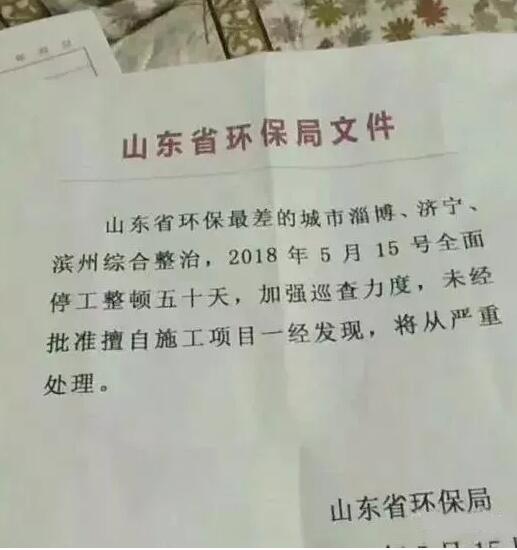 山东省环保局文件
山东省环保最差的城市淄博、济宁、
滨州综合整治，2018年5月15号全面
停工整顿五十天，加强巡查力度，未经
批准擅自施工项目一经发现，将从严重
处理。
山东省环保局
5月15